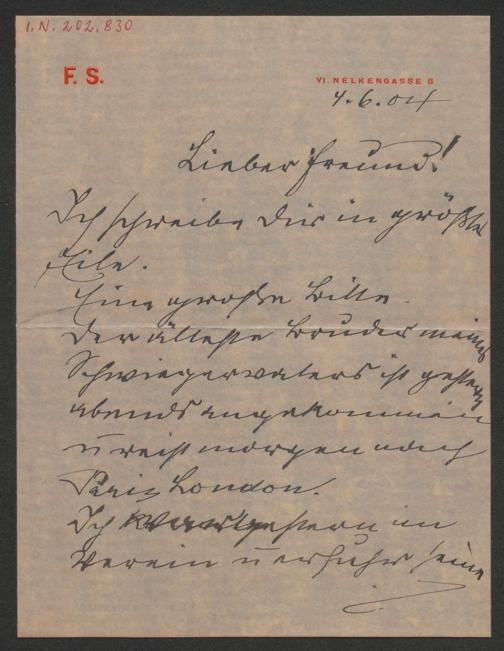 I.N. 202,830
F. S.
VI. NELKENGASSE 6
4.6.04
Lieber Freund!
Ich schreibe Dir in größter
Eile.
Eine große Bitte.
Der älteste Bruder meines
Schwiegervaters ist gestern
abends angekommen
u reist morgen nach
Paris London.
Ich war gestern im
Verein u erfuhr seine